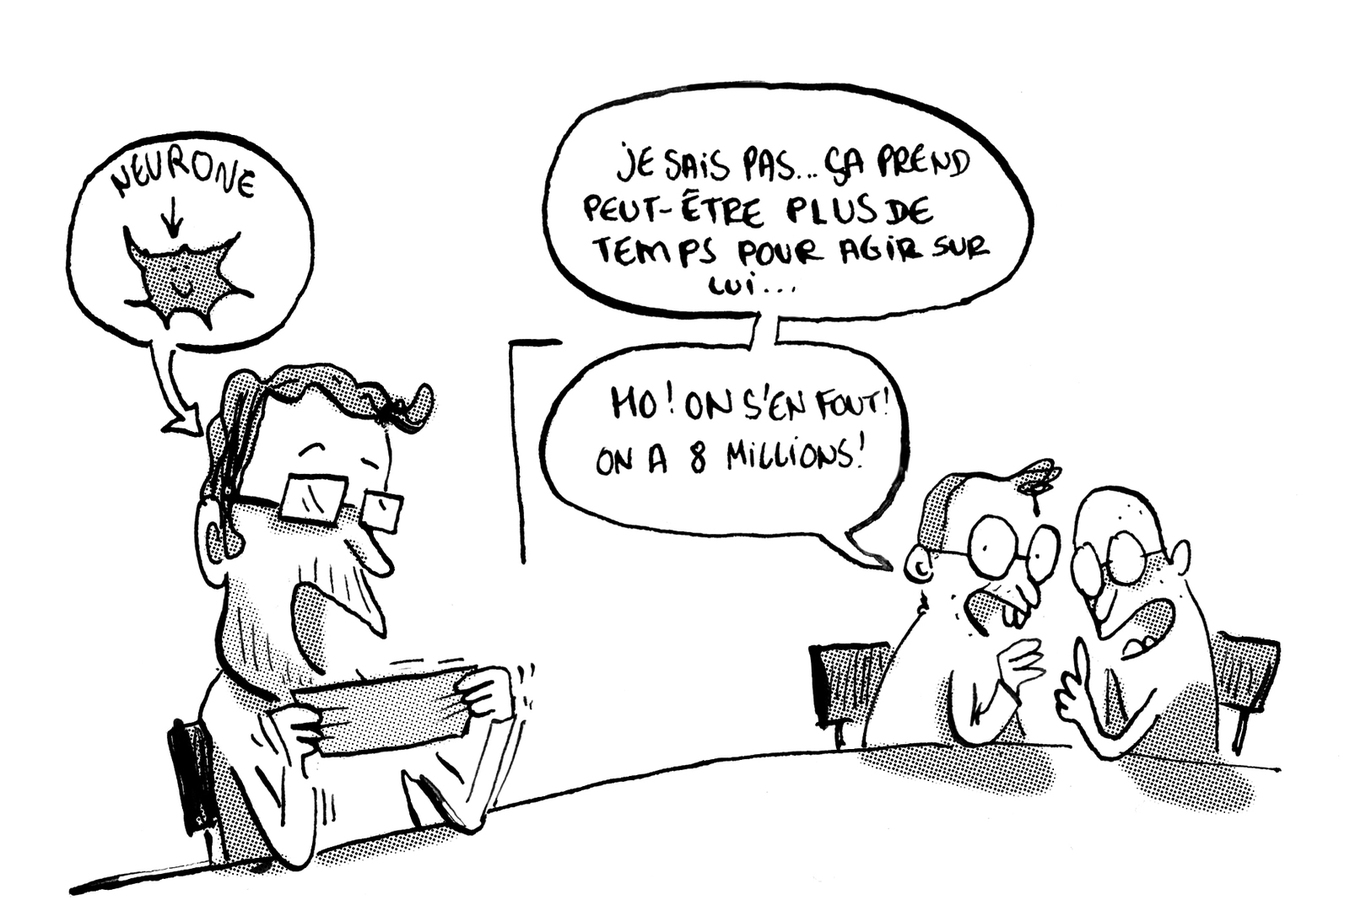 NEURONE
JE SAIS PAS... ÇA PREND
PEUT-ÊTRE PLUS DE
TEMPS POUR AGIR SUR
LUI...
HO! ON S'EN FOUT!
ON A 8 MILLIONS!